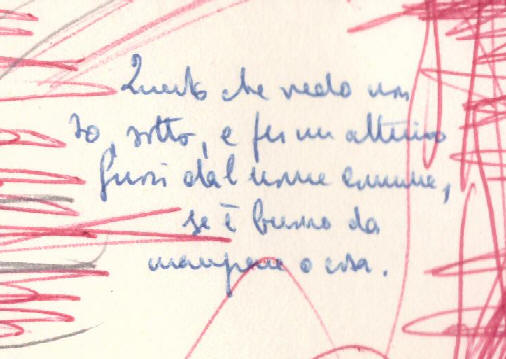 Questo che vedo non
so, sotto, e per un attimo
fuori dal nome comune,
se è buono da
mangiare o cosa.